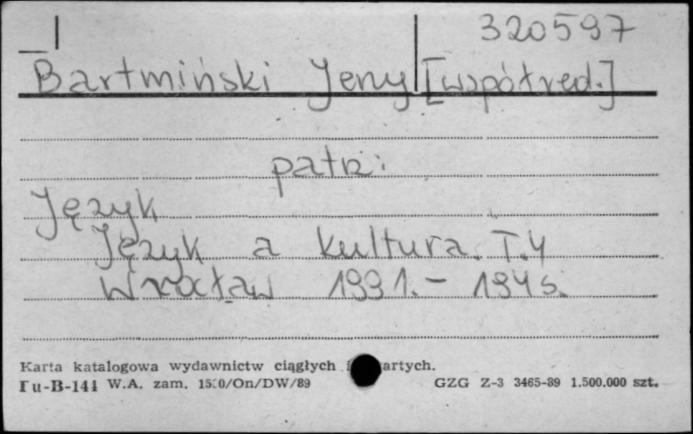 320597
Bartmiński Jerzy [współred.]
patrz:
Język
Język a kultura. T.4
Wrocław 1991.- 194 s.
Karta katalogowa wydawnictw ciągłych i artych.
Pu-B-141 W.A. zam. 1520/On/DW/89 GZG Z-3 3465-89 1.500.000 szt.